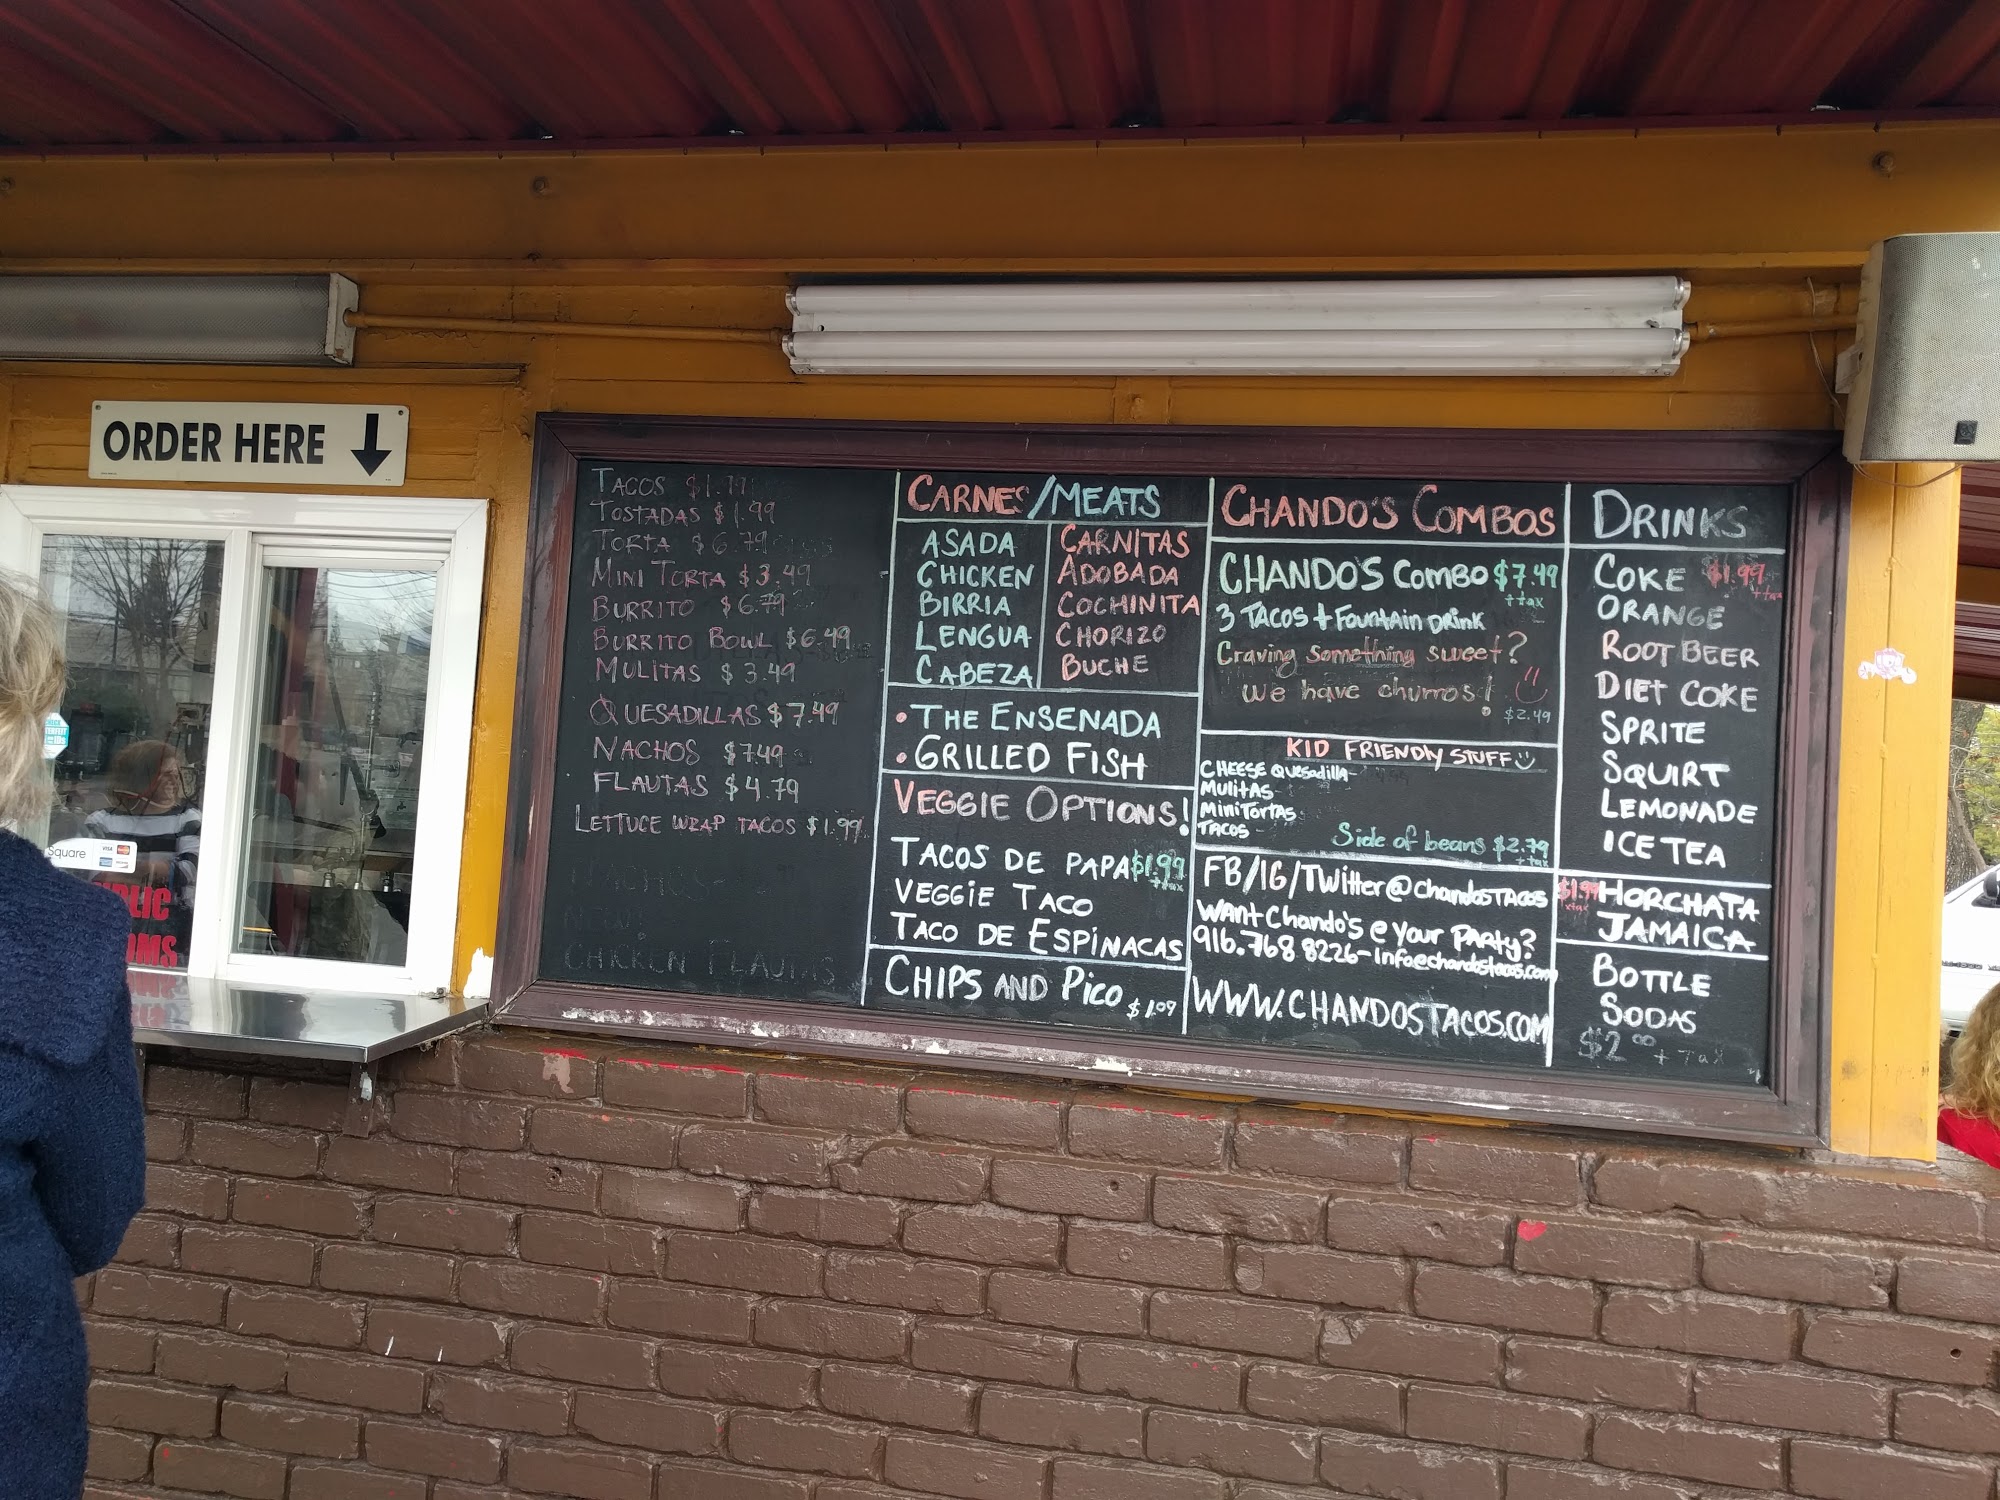 ORDER HERE
Square
VISA
TACOS $1.99
TOSTADAS $1.99
TORTA $6.79
MINI TORTA $3.49
BURRITO $6.79
BURRITO BOWL $6.49
MULITAS $3.49
QUESADILLAS $7.49
NACHOS $7.49
FLAUTAS $4.79
LETTUCE WRAP TACOS $1.99
NACHOS-
NEW!
CHICKEN FLAUTAS
CARNES/MEATS
ASADA
CHICKEN
BIRRIA
LENGUA
CABEZA
CARNITAS
ADOBADA
COCHINITA
CHORIZO
BUCHE
• THE ENSENADA
• GRILLED FISH
VEGGIE OPTIONS!
TACOS DE PAPA $1.99
+tax
VEGGIE TACO
TACO DE ESPINACAS
CHIPS AND PICO $1.09
CHANDO'S COMBOS
CHANDO'S COMBO $7.49
+tax
3 TACOS + FOUNTAIN DRINK
Craving something sweet?
we have churros!
$2.49
KID FRIENDLY STUFF
CHEESE QUESADILLA-
MULITAS-
MINI TORTAS-
TACOS-
Side of beans $2.79
+tax
FB/IG/TWITTER@CHANDOSTACOS
WANT CHANDO'S @ YOUR PARTY?
916.768.8226-info@chandostacos.com
WWW.CHANDOSTACOS.COM
DRINKS
COKE $1.99
+tax
ORANGE
ROOT BEER
DIET COKE
SPRITE
SQUIRT
LEMONADE
ICE TEA
$1.99 HORCHATA
+tax
JAMAICA
BOTTLE
SODAS
$2.00 + Tax